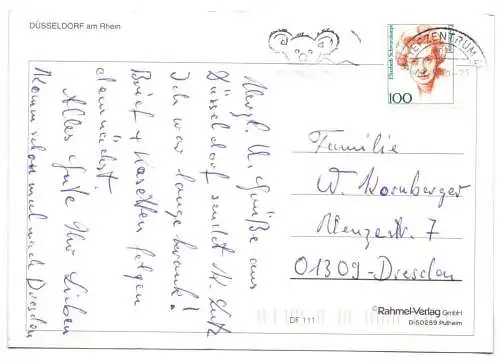 DÜSSELDORF am Rhein
Herzl. Grüße aus
Düsseldorf sendet
Ich war lange krank!
Brief + Kasetten folgen
demnächst!
Alles Gute Ihr Lieben
Komm schon mal nach Dresden
Elisabeth Schwarzhaupt
100
Familie
W. Kornberger
7
01309-Dresden
DF 111
©Rahmel-Verlag GmbH
D-50259 Pulheim